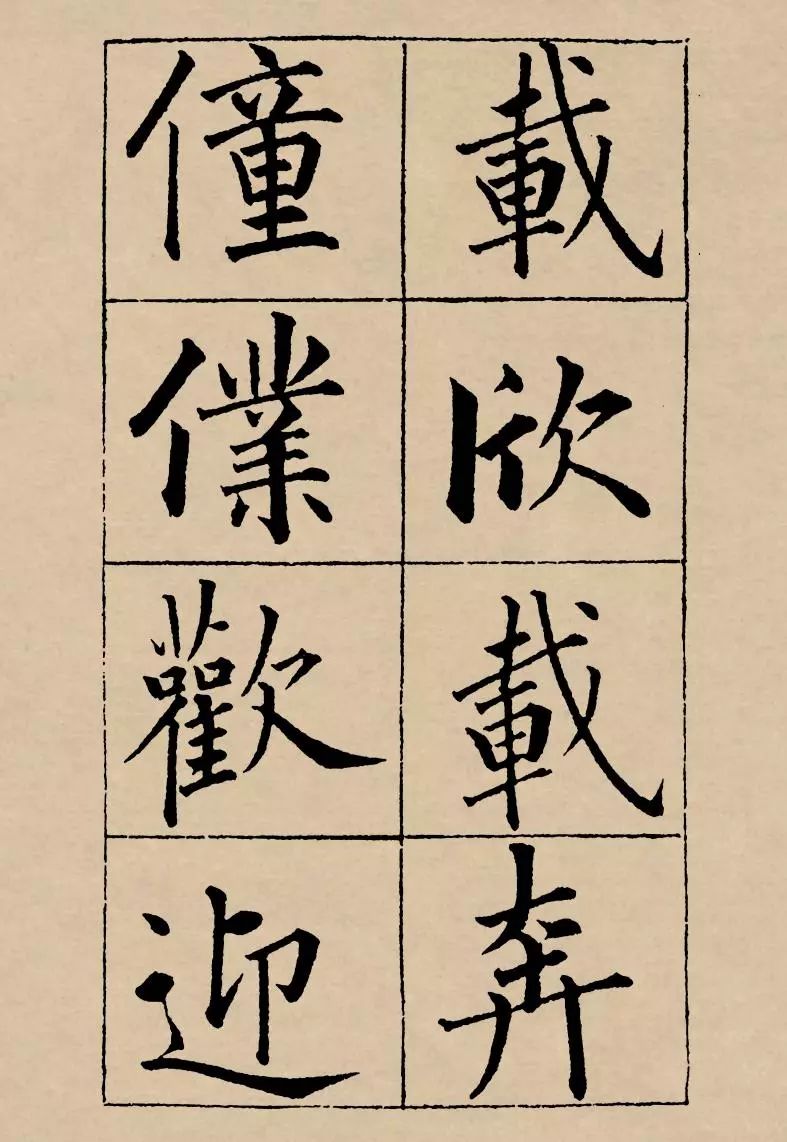 載欣載奔
僮僕歡迎